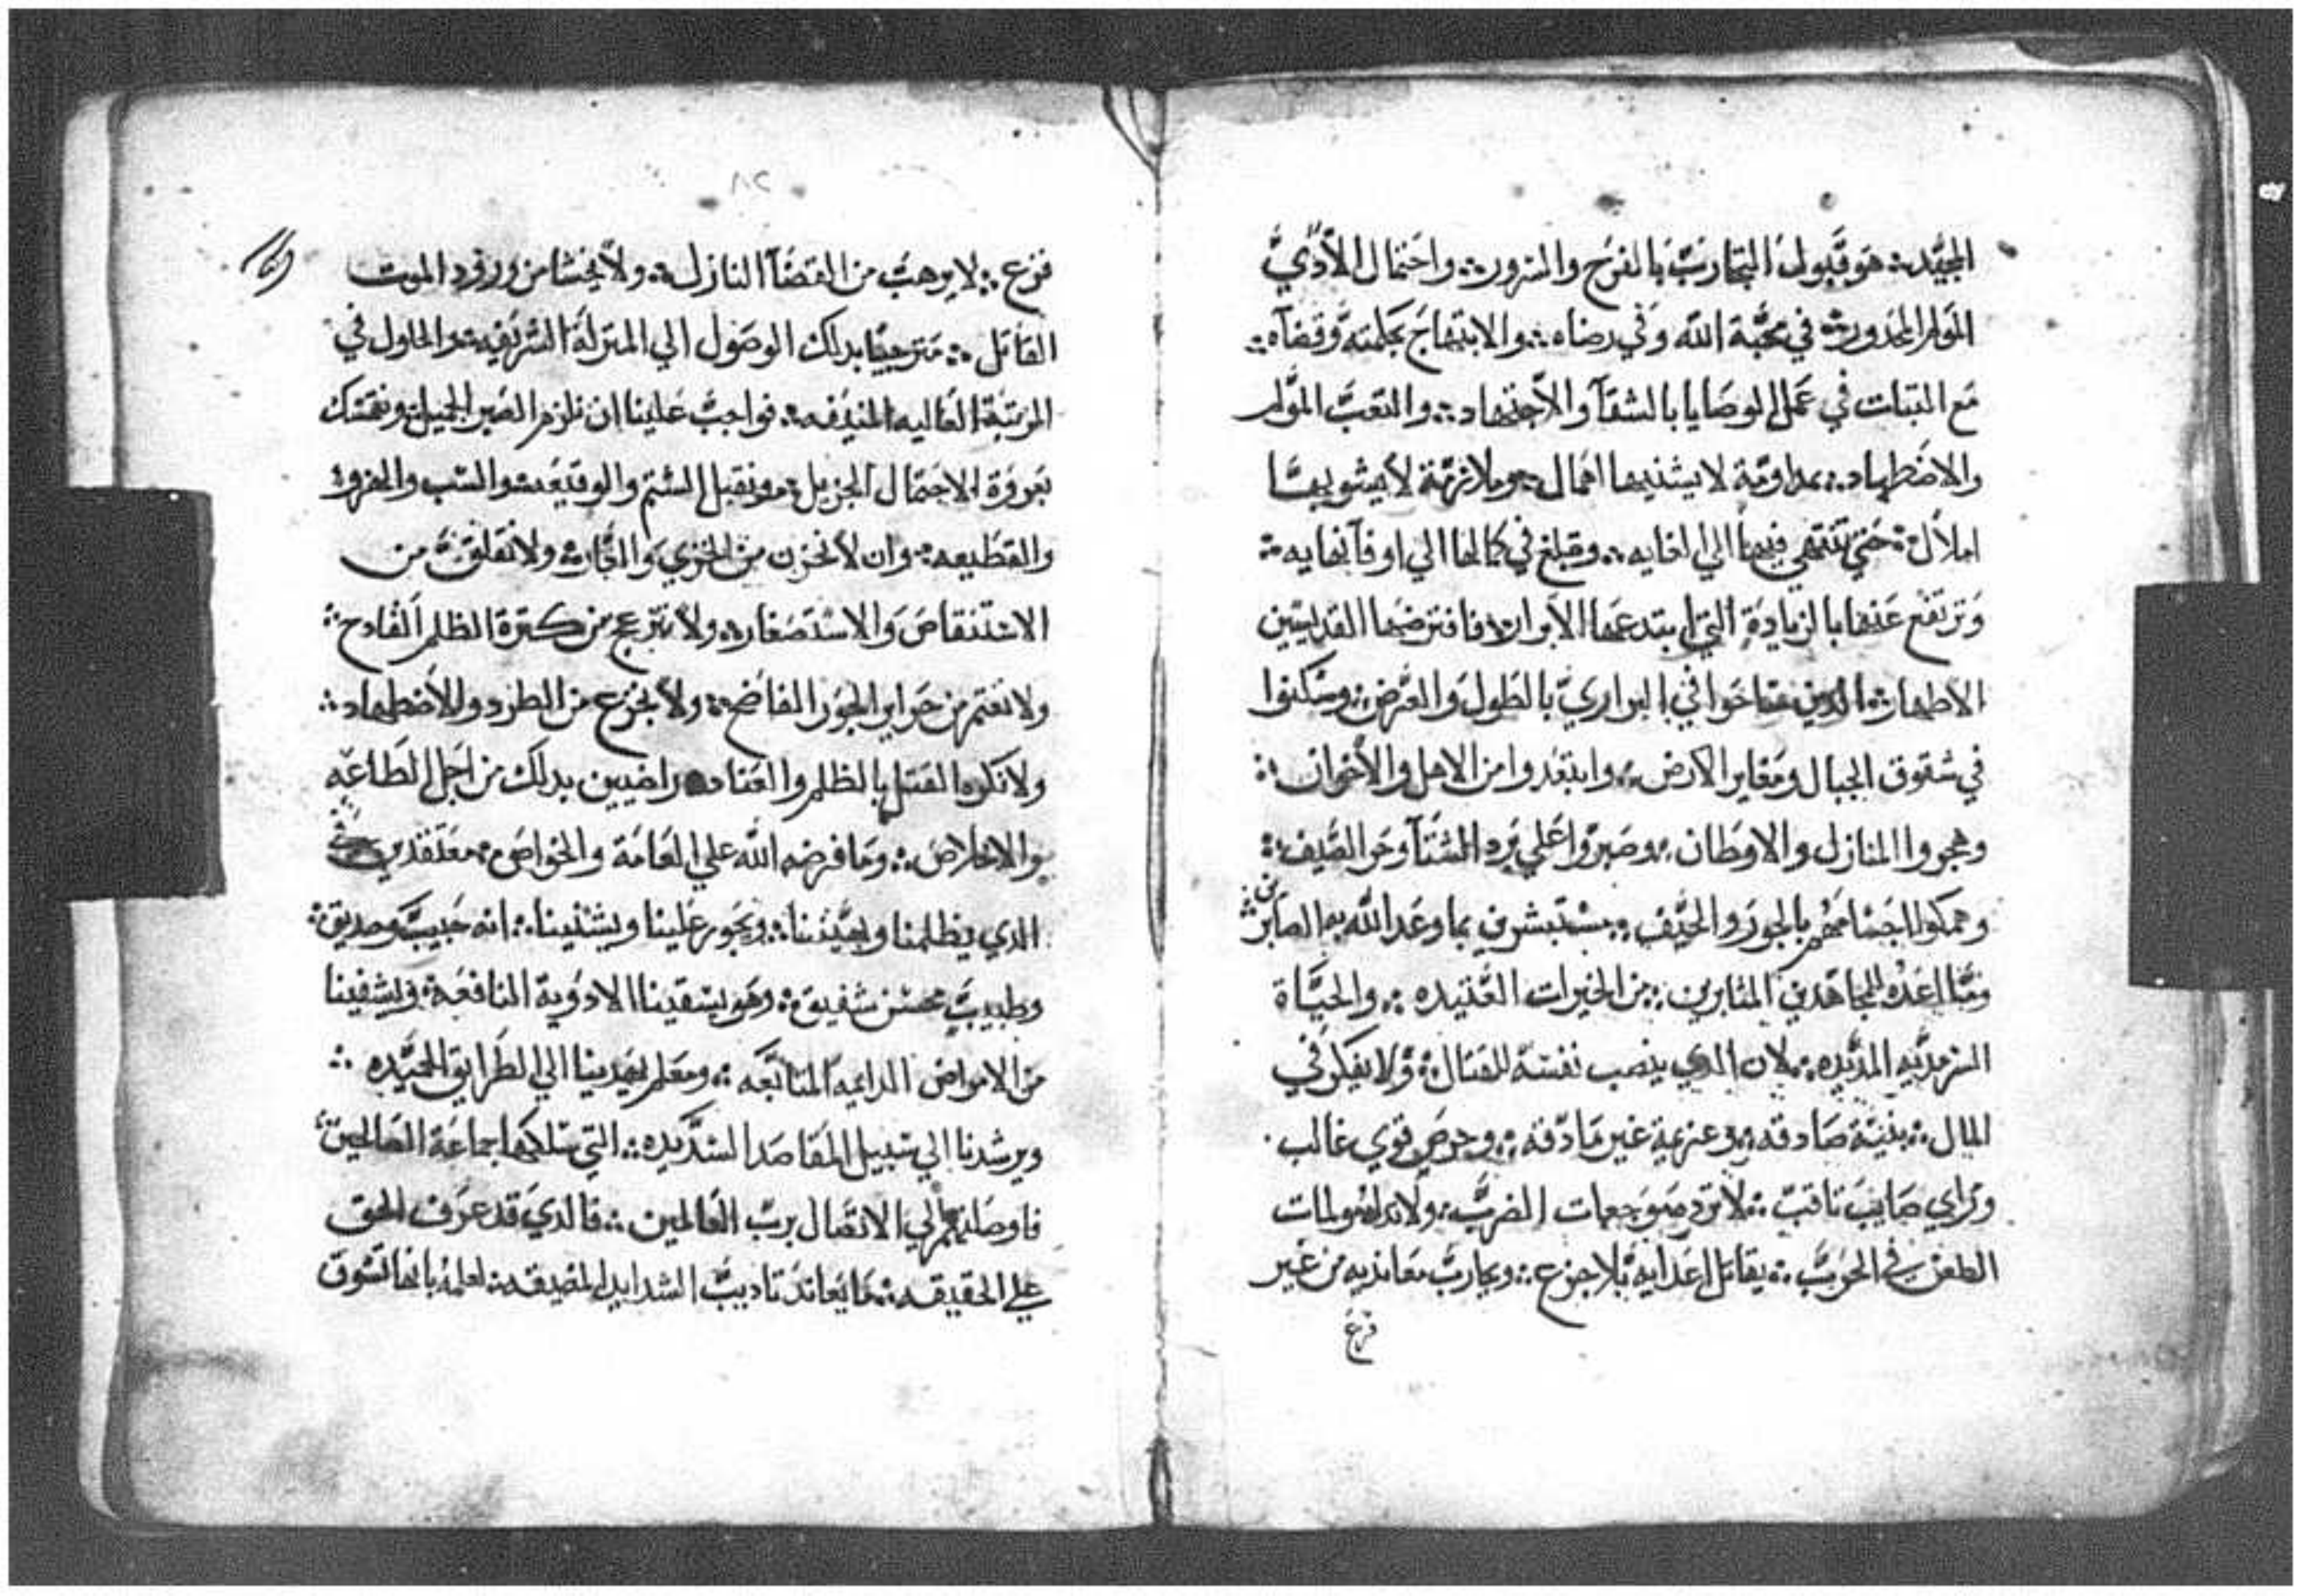 الجيد ؞ هو قبول التجارب بالفرح والسرور ؞ واحتمال الأذي
المولم المحدور ؞ في محبة الله وفي رضاه ؞ والابتهاج بحكمته وقضاه ؞
مع التبات في عمل الوصايا بالشقآ والاجتهاد ؞ والتعب المولم
والاضطهاد ؞ بمداومة لا يشنيها اهمال ؞ وملازمة لا يشوبها
املال ؞ حتي تنتهي فيها الي الغايه ؞ وتبلغ في كمالها الي اوفآ نهايه ؞
وترتفع عنها بالزيادة التي ابتدعها الأبرار ؞ فافترضها القديسين
الاطهار ؞ الدين ساحوا في البراري بالطول والعرض ؞ وسكنوا
في شقوق الجبال ومغاير الارض ؞ وابتعدوا من الاهل والأخوان ؞
وهجروا المنازل والاوطان ؞ وصبروا علي برد الشتآ وحر الصيف ؞
ونهكوا اجسامهم بالجور والحيف ؞ مستبشرين بما وعد الله به الصابرين
وما اعده للمجاهدين المثابرين ؞ من الخيرات العتيده ؞ والحياة
السرمديه المديده ؞ لان الدي ينصب نفسه للقتال ؞ ولا يفكر في
المال ؞ بنية صادقه ؞ وعزيمة غير مادقه ؞ وحرص قوي غالب .
وراي صايب تاقب ؞ لا ترد موجعات الضرب ؞ ولا مولمات
الطعن في الحرب ؞ يقاتل اعدايه بلا جزع ؞ ويحارب معانديه من غير
فزع
٨٢
فزع ؞ لا يرهب من القضآ النازل ؞ ولا يخشا من ورود الموت
القاتل ؞ مترجيًا بدلك الوصول الي المنزلة الشريفه ؞ والحلول في
المرتبة العاليه المنيفه ؞ فواجب علينا ان نلزم الصبر الجميل ؞ ونتمسك
بعروة الاحتمال الجزيل ؞ ونقبل الشتم والوقيعه ؞ والسب والهزو
والقطيعه ؞ وان لا نحزن من الخزي والعار ؞ ولا نقلق من
الاستنقاص والاستصغار ؞ ولا ننزعج من كترة الظلم الفادح ؞
ولا نغتم من جراير الجور الفاضح ؞ ولا نجزع من الطرد والاضطهاد ؞
ولا نكره القتل بالظلم والعناد ؞ راضيين بدلك من اجل الطاعه
والاخلاص ؞ وما فرضه الله علي العامة والخواص ؞ معتقدين
الدي يظلمنا ويعيدنا ؞ ويجور علينا ويشنينا ؞ انه حبيب وصديق ؞
وطبيب محسن شفيق ؞ وهو يسقينا الادوية النافعه ؞ ويشفينا
من الامراض الدايمه المتتابعه ؞ ومعلم يهدينا الي الطرايق الحميده ؞
ويرشدنا الي سبيل المقاصد السديده ؞ التي سلكها جماعة الصالحين ؞
فاوصلتهم الي الاتصال برب العالمين ؞ فالدي قد عرف الحق
علي الحقيقه ؞ ما يعاند تاديب الشدايد المضيقه ؞ لعلمه بانها تسوق